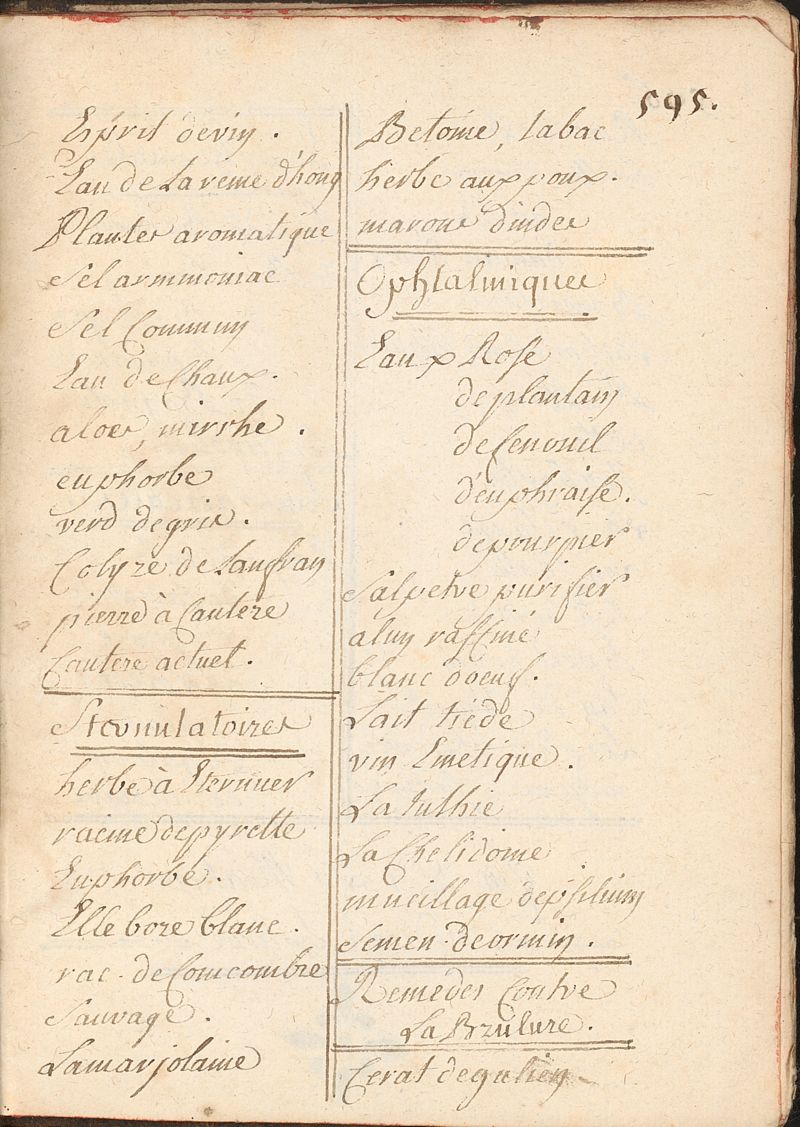 595.
Esprit devin .
Eau de La reine d'hong
Plantes aromatique
Sel armmoniac
Sel Commun
Eau de Chaux.
aloes, mirrhe .
euphorbe
verd degris .
Colyre de Lanfran
pierre à Cautere
Cautere actuel .
Sternulatoires
herbe à Eternuer
racine depyrette
Euphorbe .
Ellebore blanc .
rac . de Comcombre
Sauvage .
Lamarjolaine
Betoine, tabac
herbe aux poux .
marons dindes
Ophtalmiques
Eaux Rose
de plantain
de fenouil
d'euphraise .
de pourpier
Salpetre purifier
alun raffiné
blanc doeuf .
Lait tiède
vin Emetique .
La tuthie
La Chelidoine
mucillage depsilium
Semen deormin .
Remedes Contre
La Brulure .
Cerat degalien